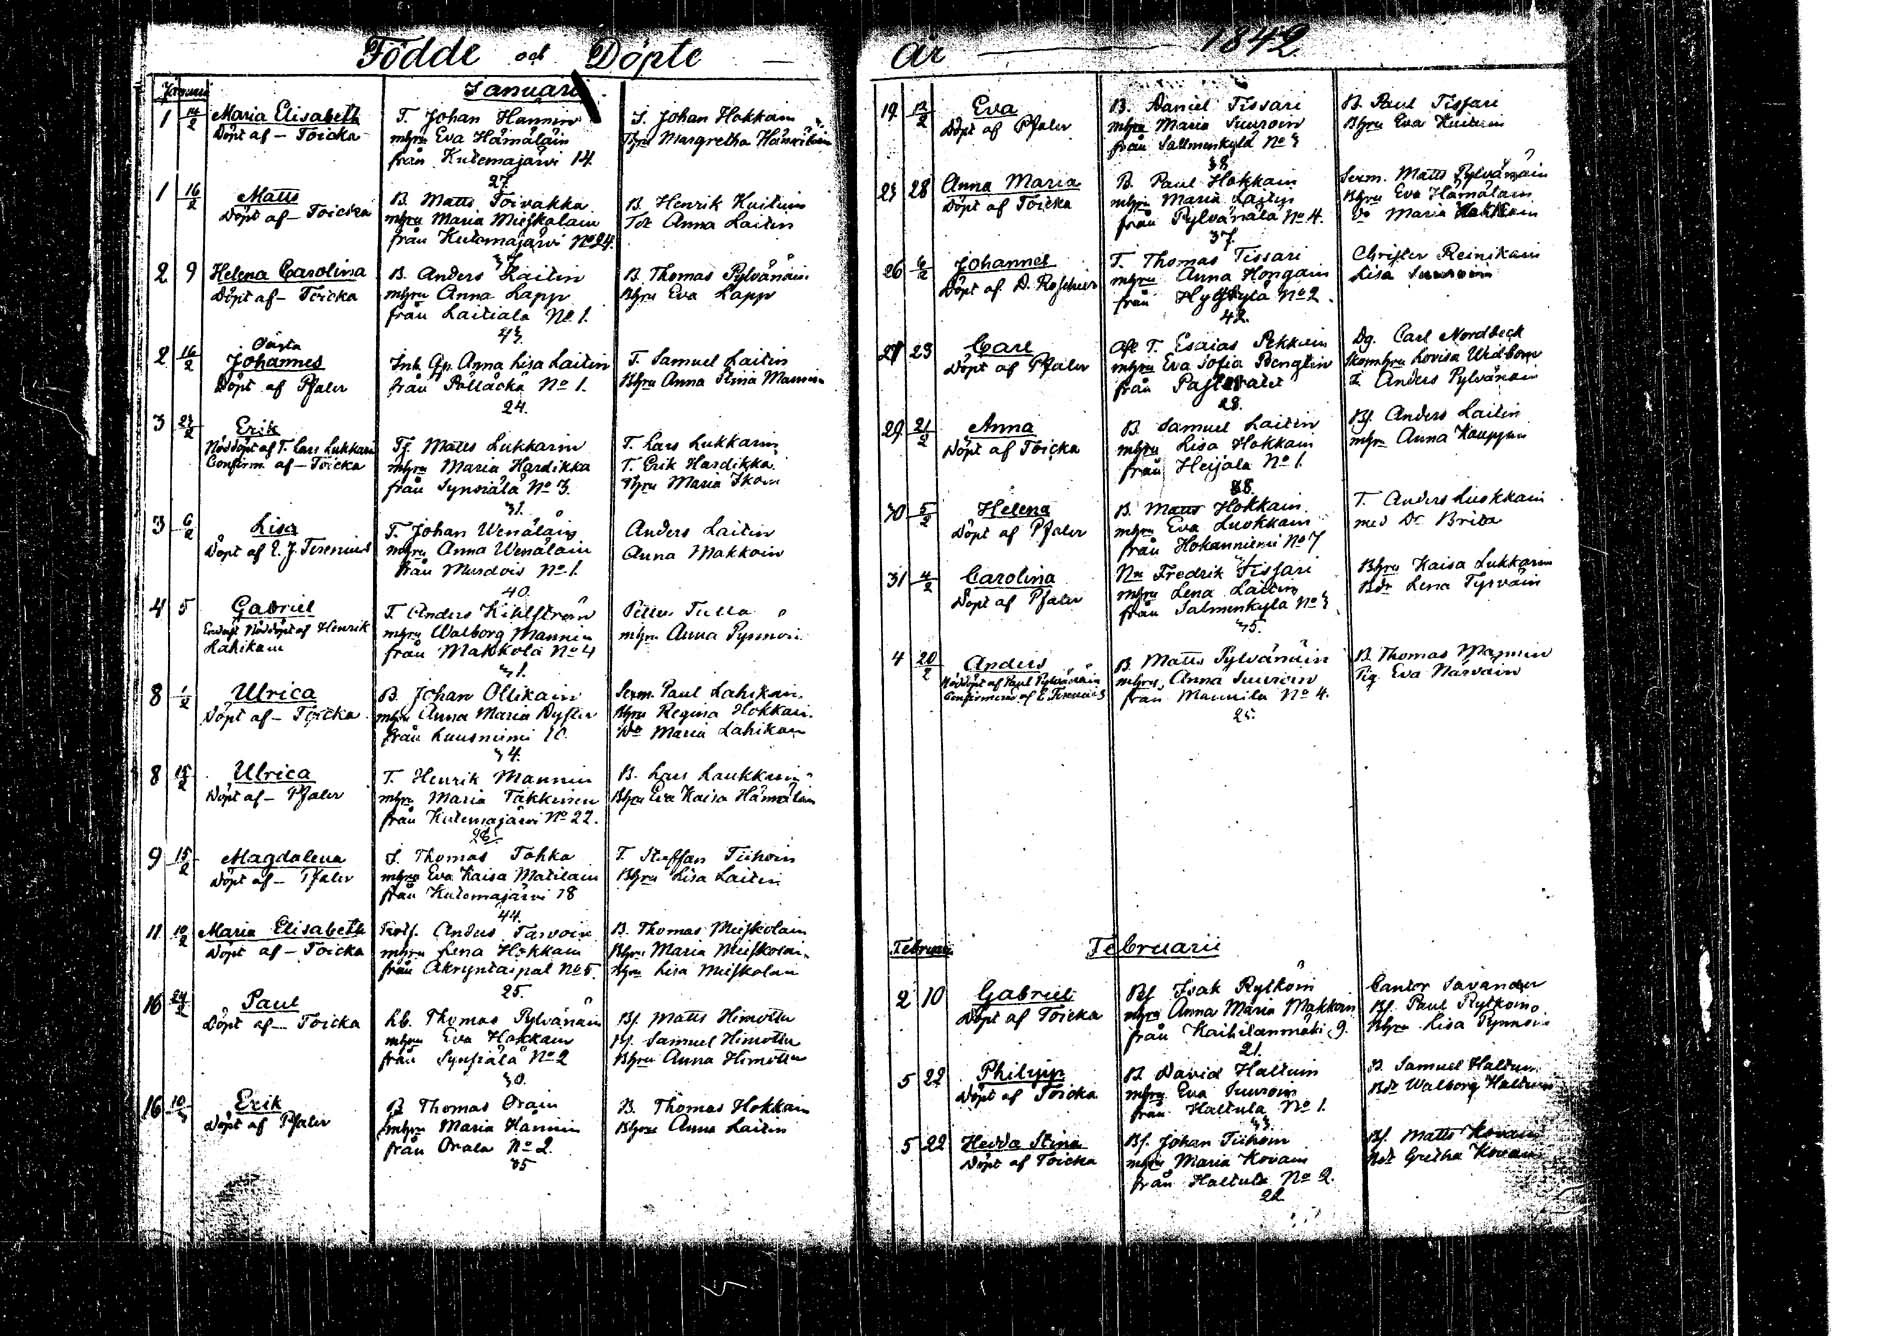 Födde och Döpte
Januari
Januari
1 14/2 Maria Elisabeth
Döpt af - Toicka
T. Johan Hannin
mhru Eva Hämäläin
från Kutemajärvi 14.
27.
J. Johan Hokkain
Thru Margretha Hämäläin
1 16/2 Matts
Döpt af - Toicka
B. Matts Toivakka
mhru Maria Mieskolain
från Kutemajärvi No 24.
B. Henrik Kuituin
Tdr Anna Laitin
2 9 Helena Carolina
Döpt af - Toicka
B. Anders Laitin
mhru Anna Lapp
från Laitiala No 1.
43.
B. Thomas Pylvänäin
Bhru Eva Lapp
2 16/2 Oäkta
Johannes
Döpt af Pfaler
Inh. Qp. Anna Lisa Laitin
från Pölläckä No 1.
24.
T. Samuel Laitin
Bhru Anna Stina Mannin
3 Erik
Nöddöpt af T. Lars Lukkarin
Confirm. af - Toicka
Tf. Matts Lukkarin
mhru Maria Hardikka
från Synsiälä No 3.
31.
T. Lars Lukkarin
T. Erik Hardikka
Thru Maria Ikoin
3 6/2 Lisa
Döpt af E. J. Terenius
T. Johan Wenäläin
mhru Anna Wenäläin
från No 1.
40.
Anders Laitin
Anna Makkoin
4 5 Gabriel
Nöddöpt af Henrik
Lahikain
T. Anders Kihlström
mhru Walborg Mannin
från Makkola No 4
31.
Petter Tulla
mhru Anna Pynnöin
8 1/2 Ulrica
Döpt af - Toicka
B. Johan Ollikain
mhru Anna Maria Dyster
från Luusniemi 10.
34.
Sexm. Paul Lahikain
Bhru Regina Hokkain
Do Maria Lahikain
8 15/2 Ulrica
Döpt af - Pfaler
T. Henrik Mannin
mhru Maria Takkinen
från Kutemajärvi No 22.
26.
B. Lars Laukkarin
Bhru Eva Kaisa Hämäläin
9 15/2 Magdalena
Döpt af - Pfaler
J. Thomas Tahka
mhru Eva Kaisa Matilain
från Kutemajärvi 18
44.
T. Staffan Tiihoin
Bhru Lisa Laitin
11 10/2 Maria Elisabeth
Döpt af - Toicka
Anders Tarvoin
mhru Lena Hokkain
från No 5.
25.
B. Thomas Mieskolain
Bhru Maria Mieskolain
Thru Lisa Mieskolain
16 24/2 Paul
Döpt af - Toicka
Lb. Thomas Pylvänäin
mhru Eva Hokkain
från Synsiälä No 2
30.
Bf. Matts Himottu
Bf. Samuel Himottu
Bhru Anna Himottu
16 10/3 Erik
Döpt af Pfaler
B Thomas Orain
mhru Maria Hännin
från Orala No 2.
35
B. Thomas Hokkain
Bhru Anna Laitin
År 1842
19 13/2 Eva
Döpt af Pfaler
B. Daniel Tissari
mhru Maria Suuroin
från Salmenkylä No 3
38
B. Paul Tissari
Bhru Eva Kuituin
23 28 Anna Maria
Döpt af Toicka
B. Paul Hokkain
mhru Maria Laitin
från Pylvänälä No 4.
37.
Sexm. Matts Pylvänäin
Bhru Eva Hämäläin
Do Maria Hokkain
26 6/2 Johannes
Döpt af D. Roschier
T. Thomas Tissari
mhru Anna Hongain
från No 2.
42.
Christer Reinikain
Lisa Suuroin
27 23 Carl
Döpt af Pfaler
Afl. T. Esaias Pekkain
mhru Eva Sofia Benglin
från
28.
Dg. Carl Nordbeck
Lovisa Widbom
T. Anders Pylvänäin
29 21/2 Anna
Döpt af Toicka
B. Samuel Laitin
mhru Lisa Hokkain
från Heijala No 1.
38.
Bf. Anders Laitin
mhru Anna Kauppin
30 5/2 Helena
Döpt af Pfaler
B. Matts Hokkain
mhru Eva Luukkain
från Hokanniemi No 7
T. Anders Luukkain
med Dr Brita
31 4/2 Carolina
Döpt af Pfaler
Nm Fredrik Tissari
mhru Lena Laitin
från Salmenkylä No 3
35.
Bhru Kaisa Lukkarin
Bdr Lena Tyrväin
4 20/2 Anders
Nöddöpt af Paul Pylvänäin
Confirmerad af E. Terenius
B. Matts Pylvänäin
mhru Anna Suuroin
från Maunila No 4.
25.
B. Thomas Mannin
Pig. Eva Narvain
Februari
Februarii
2 10 Gabriel
Döpt af Toicka
Bf Isak Rytköin
mhru Anna Maria Makkoin
från Kaihilanmäki 9.
21.
Cantor Savander
Bf. Paul Rytköin
Bhru Lisa Pynnöin
5 22 Philipp
Döpt af Toicka
B David Haltuin
mhru Eva Suuroin
från Haltula No 1.
33.
B. Samuel Haltuin
Bdr Walborg Haltuin
5 22 Hedda Stina
Döpt af Toicka
Bf. Johan Tiihoin
mhru Maria Kovain
från Haltula No 2.
22
Bf. Matts Kovain
Bdr Gretha Kovain